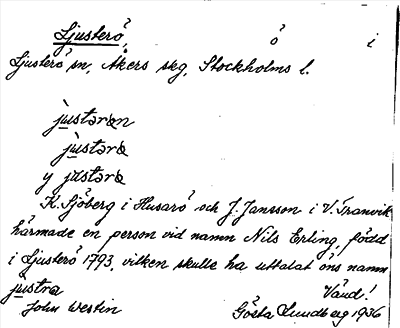 Ljusterö, ö i
Ljusterö sn, Åkers skg, Stockholms l.
jùstəran
jùstəra
y jùstəra
K. Sjöberg i Husarö och J. Jansson i V. Tranvik
härmade en person vid namn Nils Erling, född
i Ljusterö 1793, vilken skulle ha uttalat öns namn
jùstra Vänd!
John Westin Gösta Lundberg 1936